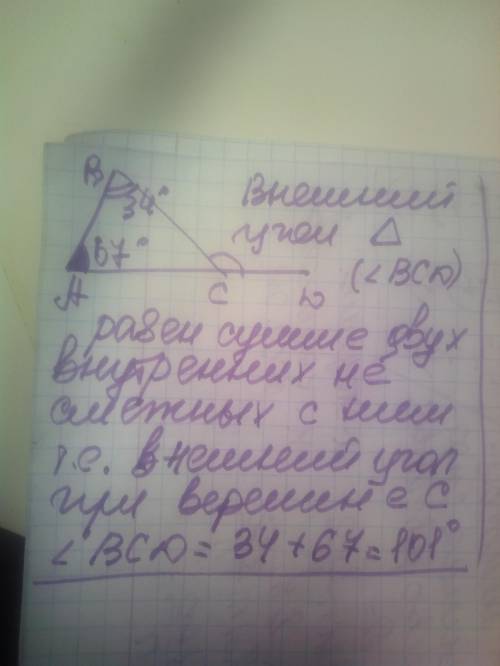 В 34°
Внешний
угол △
67°
(∠BCD)
А С D
равен сумме двух
внутренних не
смежных с ним
т.е. внешний угол
при вершине С
∠BCD = 34+67=101°